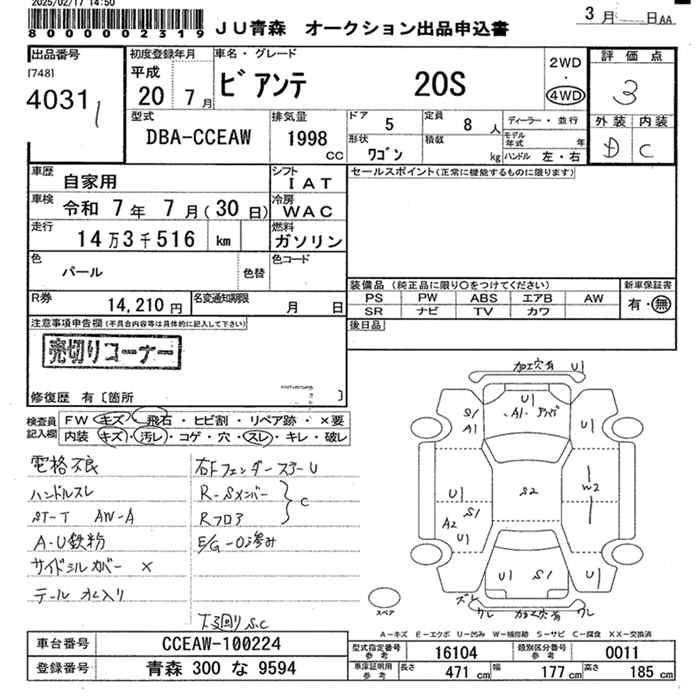 2025/02/17 14:50
80000002319
JU青森 オークション出品申込書
3月 日AA
出品番号
[748]
4031
初度登録年月
平成
20 7月
車名・グレード
ビアンテ 20S
2WD
・
4WD
評価点
3
外装 内装
D C
型式
DBA-CCEAW
排気量
1998
cc
ドア 5
定員 8 人
形状 ワゴン
積載 kg
ディーラー・並行
モデル年式 年
ハンドル 左・右
車歴 自家用
シフト IAT
車検 令和 7年 7月(30日)
冷房 WAC
走行 14万3千516 km
燃料 ガソリン
色 パール
色替
色コード
R券 14,210円
名変通知期限 月 日
セールスポイント(正常に機能するものに限ります)
装備品(純正品に限り○をつけてください)
新車保証書
PS PW ABS エアB AW
SR ナビ TV カワ
有・無
後日品
注意事項申告欄(不具合内容等は具体的に記入して下さい)
売切りコーナー
修復歴 有〔箇所 〕
検査員記入欄
FW キズ・飛石・ヒビ割・リペア跡・×要
内装 キズ・汚レ・コゲ・穴・スレ・キレ・破レ
電格不良
ハンドルスレ
ST-T AW-A
A・U鉄粉
サイドシルカバー ×
テール 水入り
右Fフェンダーステー U
R-Sメンバー
Rフロア
C
E/G-O滲み
下廻りS.C
加工穴有 U1
U1
A1
S1
A1
U1
S2
W2
U1
S1
A2
U1
U1 S1
U1
ズレ
ワレ 加工穴有 ワレ
スペア
A-キズ E-エクボ U-凹み W-補修跡 S-サビ C-腐食 XX-交換済
車台番号 CCEAW-100224
登録番号 青森 300 な 9594
型式指定番号参考 16104
類別区分番号参考 0011
車庫証明用参考 長さ 471 cm 幅 177 cm 高さ 185 cm